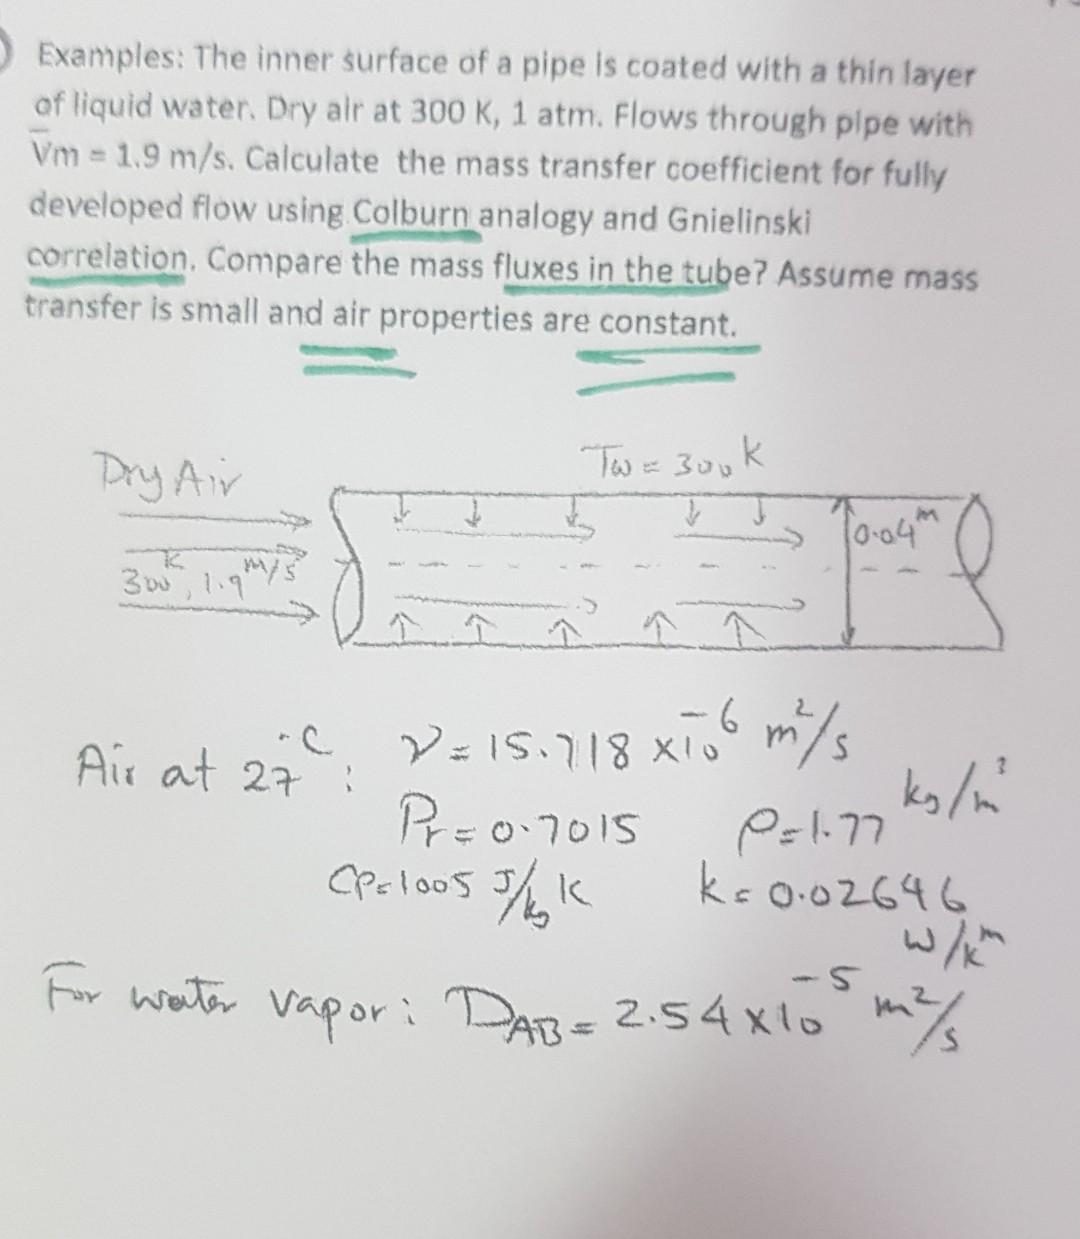 Examples: The inner surface of a pipe is coated with a thin layer
of liquid water. Dry air at 300 K, 1 atm. Flows through pipe with
V̅m = 1.9 m/s. Calculate the mass transfer coefficient for fully
developed flow using Colburn analogy and Gnielinski
correlation. Compare the mass fluxes in the tube? Assume mass
transfer is small and air properties are constant.
Tw = 300 K
Dry Air
0.04 m
300 K, 1.9 m/s
Air at 27 °C : ν = 15.718 × 10⁻⁶ m²/s
Pr = 0.7015 ρ = 1.77 kg/m³
Cp = 1005 J/kg K k = 0.02646
W/K m
For water vapor : D_AB = 2.54 × 10⁻⁵ m²/s